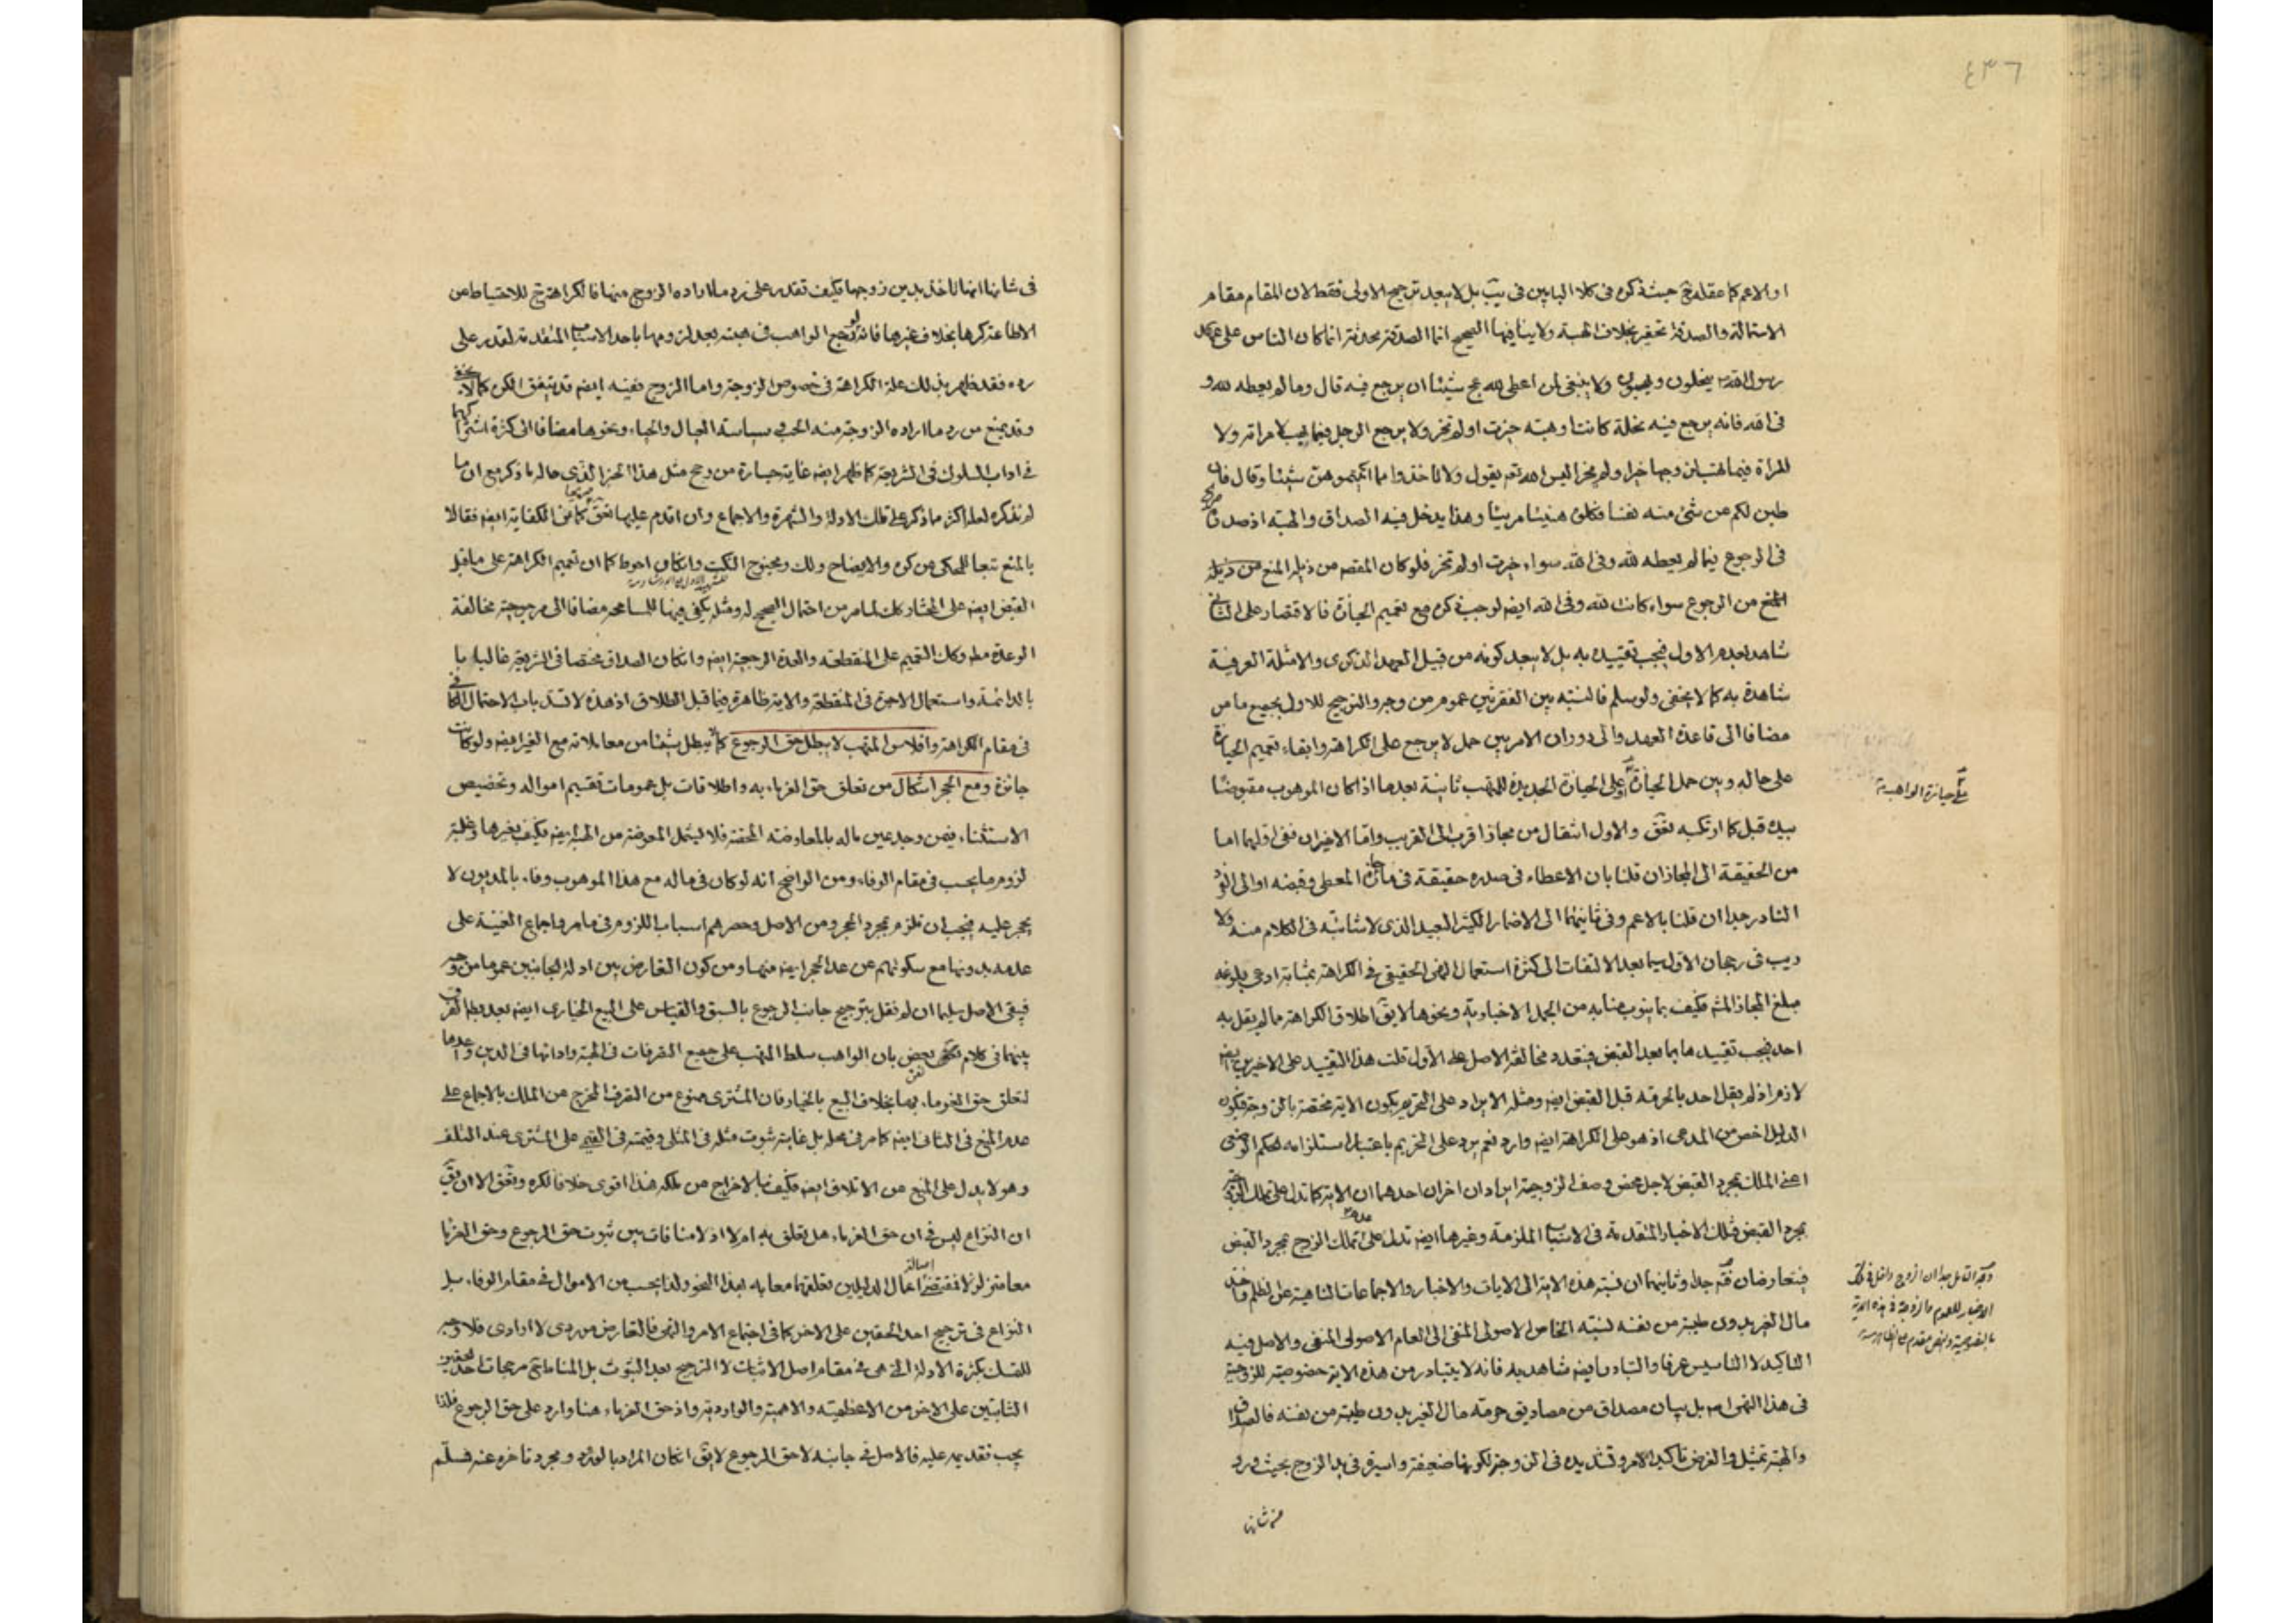 ٤٣٦
او الاعم كما عقله حيث ذكره فى كلا البابين فى بل لا يبعد ترجيح الاولى فقط لان المقام مقام
الاستمالة والصدقة تحقير بخلاف الهبة ولا ينافيها الصحيح انما الصدقة محدثة انما كان الناس على عهد
رسول الله ينحلون ويهبون ولا ينبغى لمن اعطى لله عج شيئا ان يرجع فيه قال وما لم يعطه لله و
فى الله فانه يرجع فيه نحلة كانت او هبة حيزت او لم تحز ولا يرجع الرجل فيما يهب لامراته ولا
المراة فيما تهب لزوجها حيزا ولم يحز اليس الله تعه يقول ولا تاخذوا مما اتيتموهن شيئا وقال فان
طبن لكم عن شئ منه نفسا فكلوه هنيئا مريئا وهذا يدخل فيه الصداق والهبة اذ صدره
فى الرجوع فيما لم يعطه لله وفى الله سواء حيزت او لم تحز فلو كان المقصد من ذيله المنع من ذيله
المنع من الرجوع سواء كانت لله وفى الله ايضه لوجب ذكره مع تعميم الحيازة فالاقتصار على الثانى
شاهد بعدم الاول فيجب تقييده به بل لا يبعد كونه من قبيل العهد الذكرى والامثلة العرفية
شاهدة به كما لا يخفى ولو سلم فالنسبة بين الفقرتين عموم من وجه والترجيح للاول بجميع ما مر
مضافا الى قاعدة العهد والى دوران الامر بين حمل لا يرجع على الكراهة وابقاء تعميم الحيازة
على حاله وبين حمل الحيازة على الحيازة الجديدة للمتهب ثانية بعدها اذا كان الموهوب مقبوضا
بيده قبل كما ارتكبه والاول انتقال من مجاز اقرب الى القريب واما الاخيران ففى اولهما اما
من الحقيقة الى المجاز ان قلنا بان الاعطاء فى صدره حقيقة فى المعطى وقبضه او الى الفرد
النادر جدا ان قلنا بالاعم وفى ثانيهما الى الاضمار الكثير البعيد الذى لا شائبة فى الكلام منه ولا
ريب فى رجحان الاول سيما بعد الالتفات الى كثرة استعمال النهى الحقيقى فى الكراهة بمثابة ادعى بلوغه
مبلغ المجاز المشه فكيف بما ينوب منابه من الجمل الاخبارية ونحوها لا يق اطلاق الكراهة مما لم يقل به
احد فيجب تقييدها بما بعد القبض فيتعدد مخالفة الاصل على الاول قلت هذا التقييد على الاخيرين ايضه
لازم اذ لم يقل احد بالحرمة قبل القبض ايضه ومثله الايراد على التحريم بكون الاية مختصة بالزوجة فيكون
الدليل اخص من المدعى اذ هو على الكراهة ايضه وارد نعم يرد على التحريم باعتبار استلزامه لحكم الوضعى
اعنى الملك بمجرد القبض لاجل محض وصف الزوجية ايرادان اخران احدهما ان الاية كما تدل على تملك الزوجة
بمجرد القبض فتلك الاخبار المتقدمة فى الاسباب الملزمة وغيرها ايضه تدل على عدم تملك الزوج بمجرد القبض
فيتعارضان فتم جدا وثانيهما ان نسبة هذه الاية الى الايات والاخبار والاجماعات الناهية عن الظلم واخذ
مال الغير بدون طيبة من نفسه كنسبة الخاص الاصولى المنفى الى العام الاصولى المنفى والاصل فيه
التاكيد لا التاسيس عرفا والتبادر ايضه شاهد به فانه لا يتبادر من هذه الاية خصوصية للزوجية
فى هذا النهى اصه بل بيان مصداق من مصاديق حرمة مال الغير بدون طيبة من نفسه فالصداق
والهبة تمثيل والغرض تاكيد الامر وتشديده فى الزوجة لكونها ضعيفة واسيرة فى يد الزوج بحيث ورد
فى شانها
على حيازة الواهب منه
فى شانها انها تاخذ بدين زوجها فكيف تقدر على رد ما اراده الزوج منها فالكراهة ح للاحتياط عن
الاطاعة كرها بخلاف غيرها فانه لو رجع الواهب فى هبته بعد لزومها باحد الاسباب المتقدمة لقدر على
رده فقد ظهر بذلك علة الكراهة فى خصوص الزوجة واما الزوج ففيه ايضه قد يتفق الكره كما لا يخفى
وقد يمنع من رد ما اراده الزوجة منه الحب وسياسة العيال والحياء ونحوها مضافا الى كثرة اشتراكهما
فى اداب السلوك فى الشريعة كما ظهر ايضه غاية جسارة من رجح مثل هذا التحريم الذى حاله ما ذكر مع ان ما
لم نذكره لعله اكثر مما ذكر على تلك الادلة والشهرة والاجماع وان اقدم عليها الكفاية ايضه فقالا
بالمنع تبعا للمحكى عن كره والايضاح ولك ومجنوح النكت وان كان احوط كما ان تعميم الكراهة على ما قبل
القبض ايضه على المختار كك لما مر من احتمال الصحيح له ومثله يكفى فيها للمسامحة مضافا الى مرجوحية مخالفة
الوعدة مطه وكك التعميم على المنقطعة والعدة الرجعية ايضه وان كان الصداق مختصا فى الشريعة غالبا با
بالدائمة واستعمال الاجرة فى المنقطعة والاية ظاهرة فيما قبل الطلاق اذ هذه لا تسد باب الاحتمال الكافى
فى مقام الكراهة وافلاس المتهب لا يبطل حق الرجوع كما لا يبطل شيئا من معاملاته مع الغير ايضه ولو كانت
جائزة ومع الحجر اشكال من تعلق حق الغرماء به واطلاقات بل عمومات تقسيم امواله وتخصيص
الاستثناء بمن وجد عين ماله بالمعاوضة المحضة فلا يشمل المعوضة من الهبة ايضه فكيف بغيرها وغلبة
لزوم ما يحسب فى مقام الوفاء ومن الواضح انه لو كان فى ماله مع هذا الموهوب وفاء بالديون لا
يحجر عليه فيجب ان تلزم بمجرد الحجر ومن الاصل وحصرهم اسباب اللزوم فى ما مر واجماع الغنية على
عدمه بدونها مع سكوتهم عن عد الحجر ايضه منها ومن كون التعارض بين ادلة الجانبين عموما من وجه
فيبقى الاصل سليما ان لم نقل بترجيح جانب الرجوع بالسبق والقياس على البيع الخيارى ايضه بعد وبط الفرق
بينهما فى كلام بعض بان الواهب سلط المتهب على جميع التصرفات فى الهبة واداتها فى الدين واحدها
لتعلق حق الغرماء بها بخلاف البيع بالخيار فان المشترى ممنوع من التصرف المخرج عن الملك بالاجماع على
عدم المنع فى الثانى ايضه كما مر فى محله بل غايته ثبوت مثله فى المثلى وقيمته فى القيمى على المشترى عند التلف
وهو لا يدل على المنع من الاتلاف ايضه فكيف بالاخراج عن ملكه هذا اقوى خلافا لكره الا ان يق
ان النزاع ليس فى ان حق الغرماء هل تعلق به ام لا اذ لا منافات بين ثبوت حق الرجوع وحق الغرماء
معا متزلزلا فمقتضى اصالة اعمال الدليلين تعلقهما معا به بهذا النحو ولذا يحسب من الاموال فى مقام الوفاء بل
النزاع فى ترجيح احد الحقين على الاخر كما فى اجتماع الامر والنهى فالتعارض موردى لا اوادى فلا وجه
للتمسك بكثرة الادلة التى هى فى مقام اصل الاثبات لا الترجيح بعد الثبوت بل المناط ح مرجحات احد الحقين
الثابتين على الاخر من الاعظمية والاهمية والواردية واذ حق الغرماء هنا وارد على حق الرجوع فلذا
يجب تقديمه عليه فالاصل فى جانبه لا حق الرجوع لا يق ان كان المراد بالورود مجرد تاخره عنه فسلم